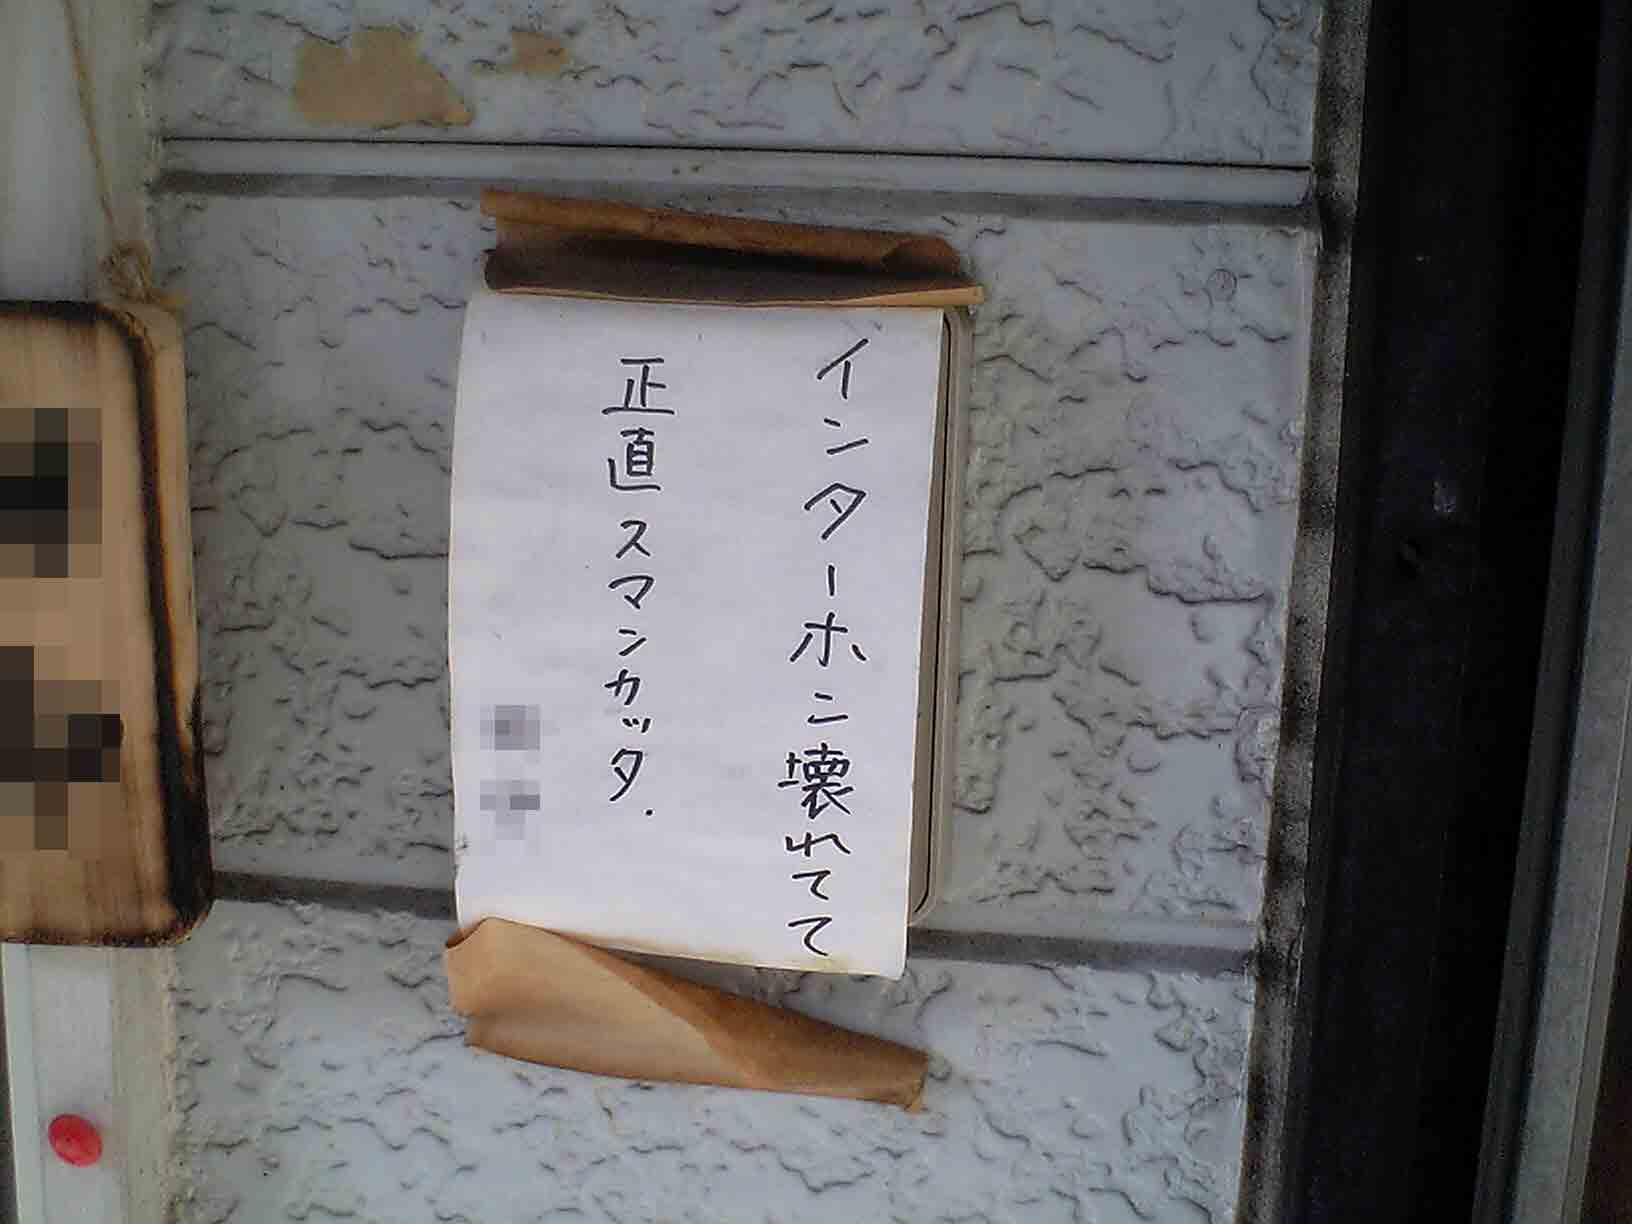 インターホン壊れてて
正直スマンカッタ.